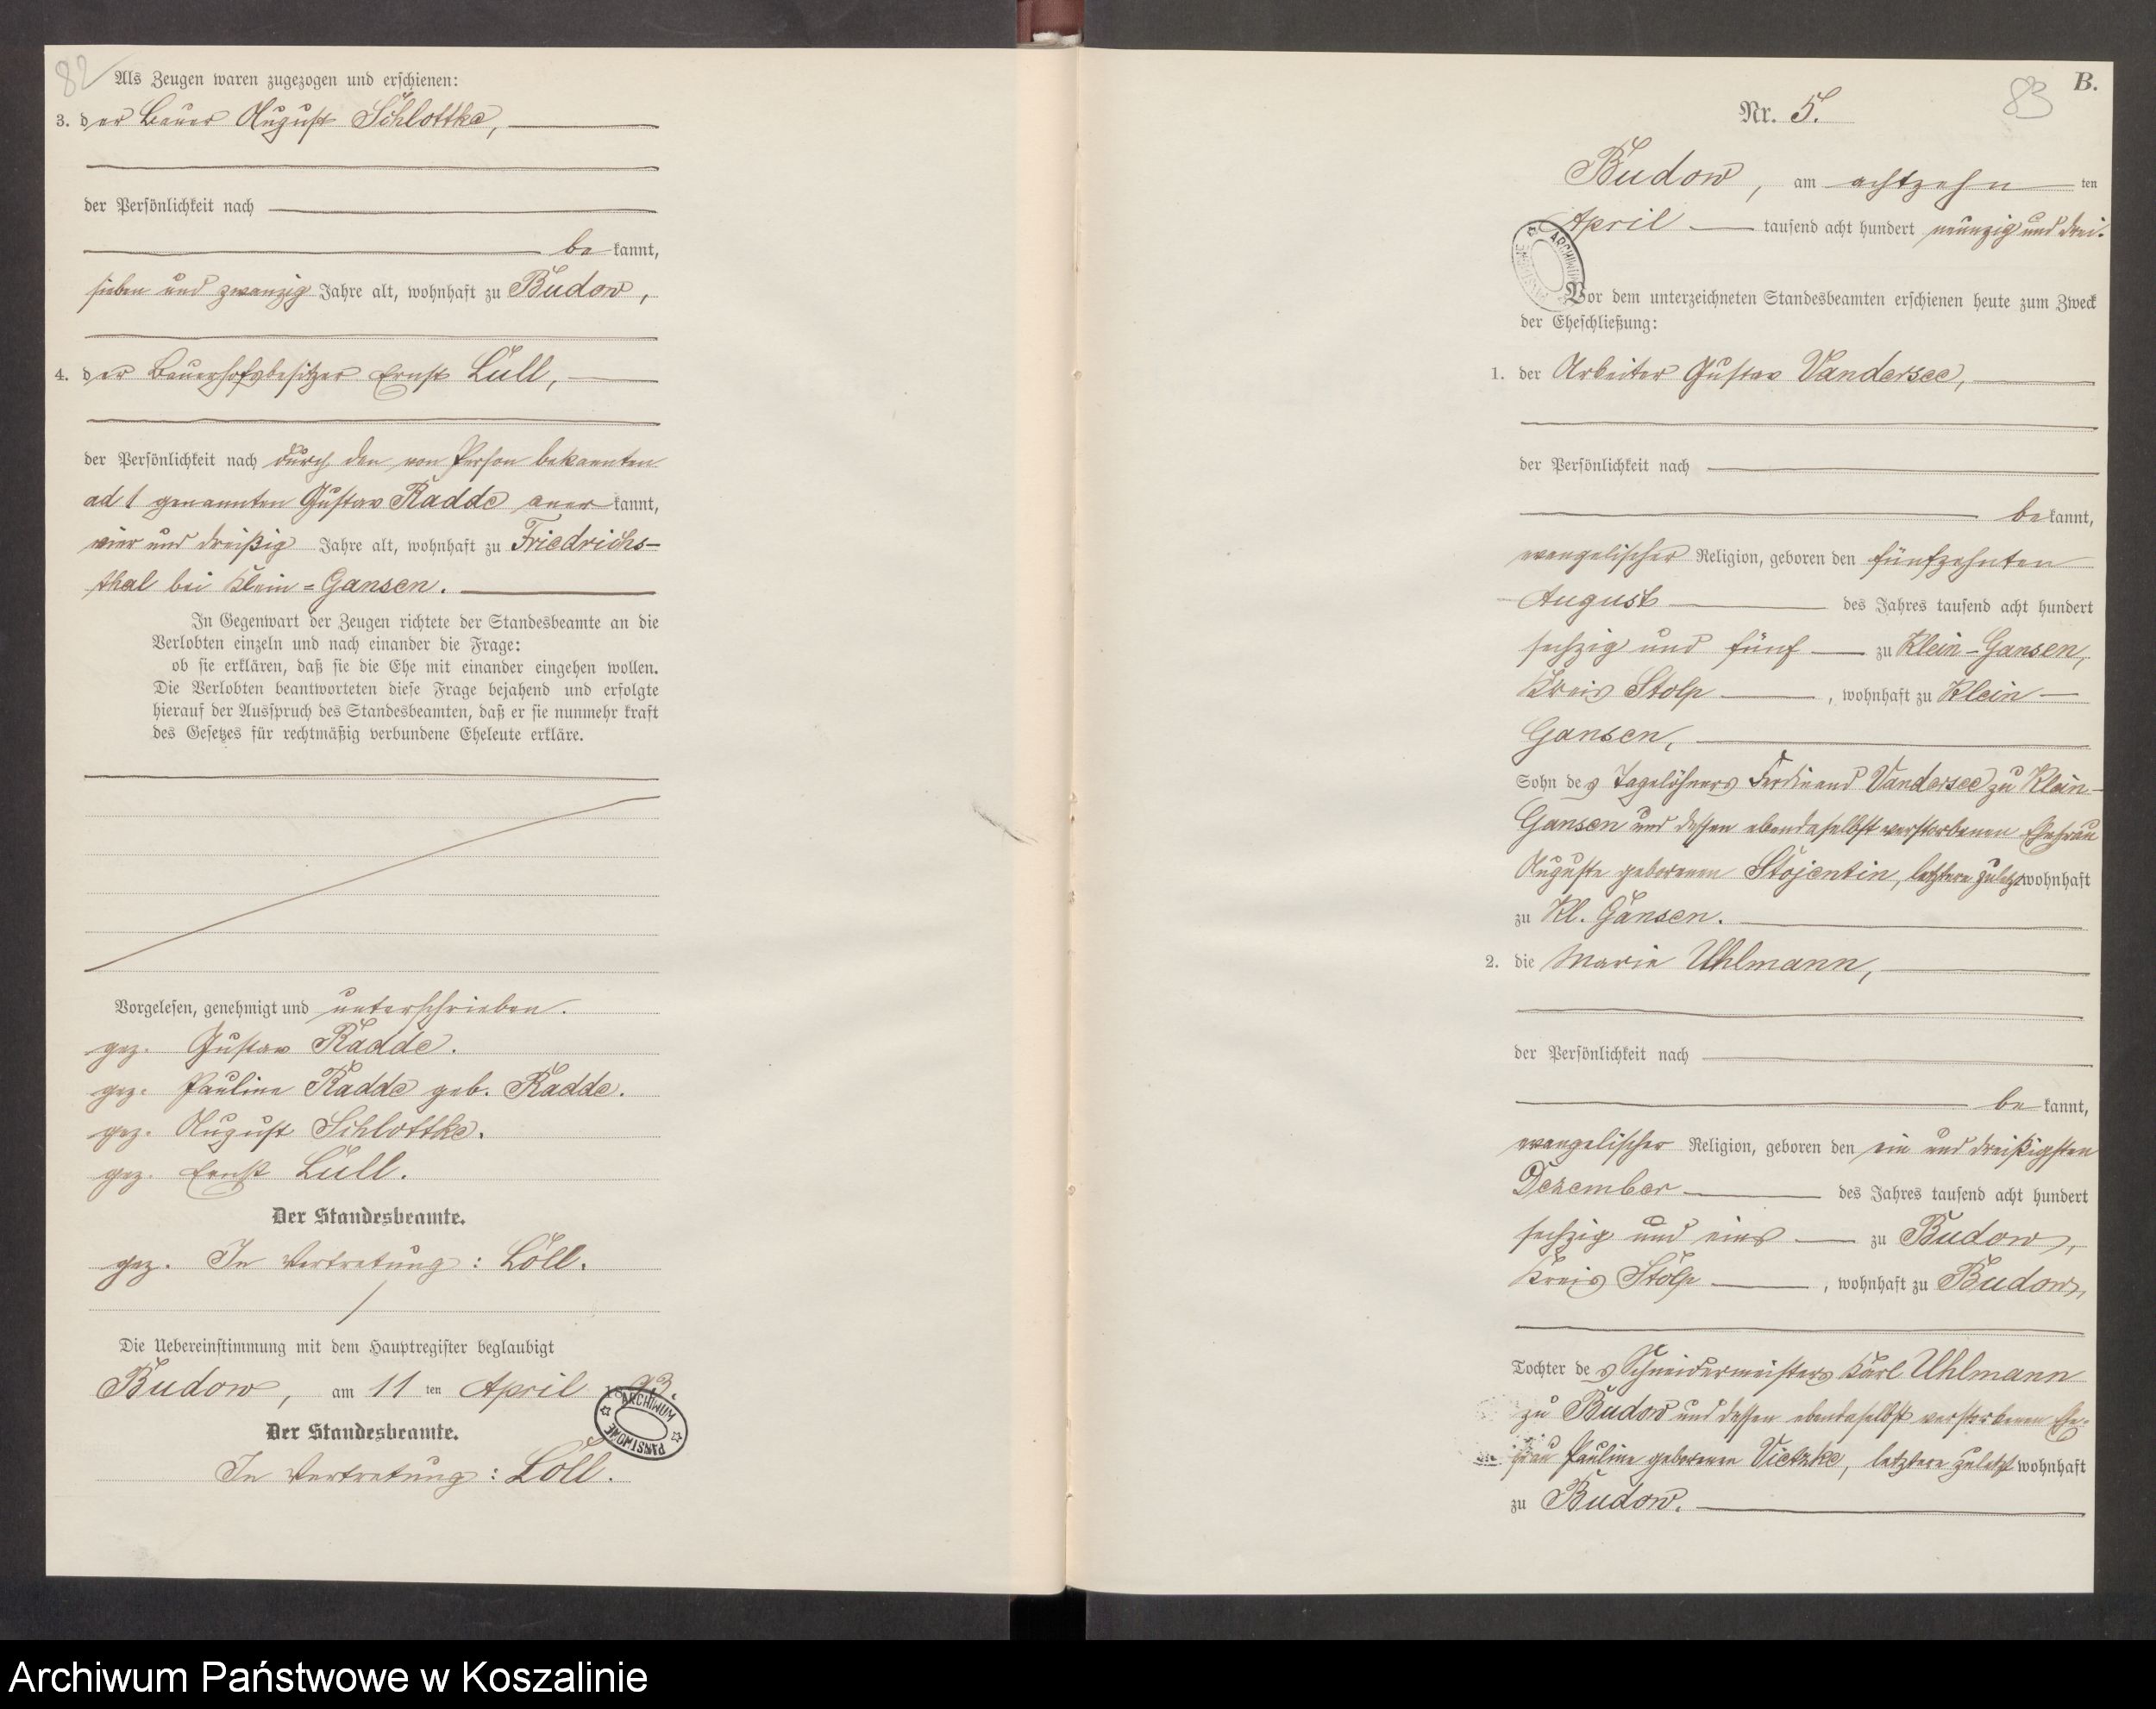 82
Als Zeugen waren zugezogen und erschienen:
3. der Bauer August Schlottke,
der Persönlichkeit nach
bekannt,
sieben und zwanzig Jahre alt, wohnhaft zu Budow,
4. der Bauerhofsbesitzer Ernst Lüll,
der Persönlichkeit nach durch den von Person bekannten
ad 1 genannten Gustav Radde anerkannt,
vier und dreißig Jahre alt, wohnhaft zu Friedrichs-
thal bei Klein=Gansen.
In Gegenwart der Zeugen richtete der Standesbeamte an die
Verlobten einzeln und nach einander die Frage:
ob sie erklären, daß sie die Ehe mit einander eingehen wollen.
Die Verlobten beantworteten diese Frage bejahend und erfolgte
hierauf der Ausspruch des Standesbeamten, daß er sie nunmehr kraft
des Gesetzes für rechtmäßig verbundene Eheleute erkläre.
Vorgelesen, genehmigt und unterschrieben.
gez. Gustav Radde.
gez. Pauline Radde geb. Radde.
gez. August Schlottke.
gez. Ernst Lüll.
Der Standesbeamte.
gez. In Vertretung: Löll.
Die Uebereinstimmung mit dem Hauptregister beglaubigt
Budow, am 11ten April 1893.
ARCHIWUM PAŃSTWOWE
Der Standesbeamte.
In Vertretung: Löll.
83
B.
Nr. 5.
Budow, am achtzehnten
April tausend acht hundert neunzig und drei.
ARCHIWUM
Vor dem unterzeichneten Standesbeamten erschienen heute zum Zweck
der Eheschließung:
1. der Arbeiter Gustav Vandersee,
der Persönlichkeit nach
bekannt,
evangelischer Religion, geboren den fünfzehnten
August des Jahres tausend acht hundert
sechzig und fünf zu Klein-Gansen,
Kreis Stolp, wohnhaft zu Klein-
Gansen,
Sohn des Tagelöhners Ferdinand Vandersee zu Klein-
Gansen und dessen ebendaselbst verstorbenen Ehefrau
Auguste geborenen Stojentin, letztere zuletzt wohnhaft
zu Kl. Gansen.
2. die Marie Uhlmann,
der Persönlichkeit nach
bekannt,
evangelischer Religion, geboren den ein und dreißigsten
Dezember des Jahres tausend acht hundert
sechzig und eins zu Budow,
Kreis Stolp, wohnhaft zu Budow,
Tochter des Schneidermeisters Karl Uhlmann
zu Budow und dessen ebendaselbst verstorbenen Ehe-
frau Pauline geborenen Vietzke, letztere zuletzt wohnhaft
zu Budow.
Archiwum Państwowe w Koszalinie